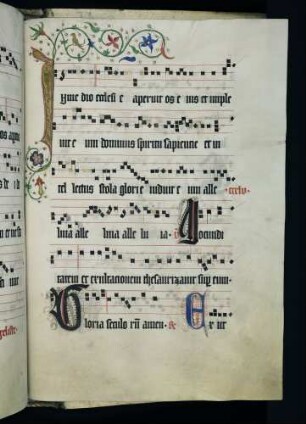 In me dio ecclesi e aperuit os e ius et imple
uit e um dominus spiritu sapiencie et in
tel lectus stola glorie induit e um alle
luia alle luia alle lu ia Iocundi
tatem et exultacionem thesaurizauit sup eum
Gloria seculo rū amen Et ut